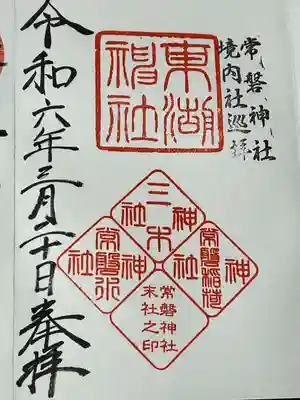 常磐神社
境内社巡拝
東湖
神社
三木
神社
常磐稲荷
神社
常磐水
神社
常磐神社
末社之印
令和六年三月二十日奉拝